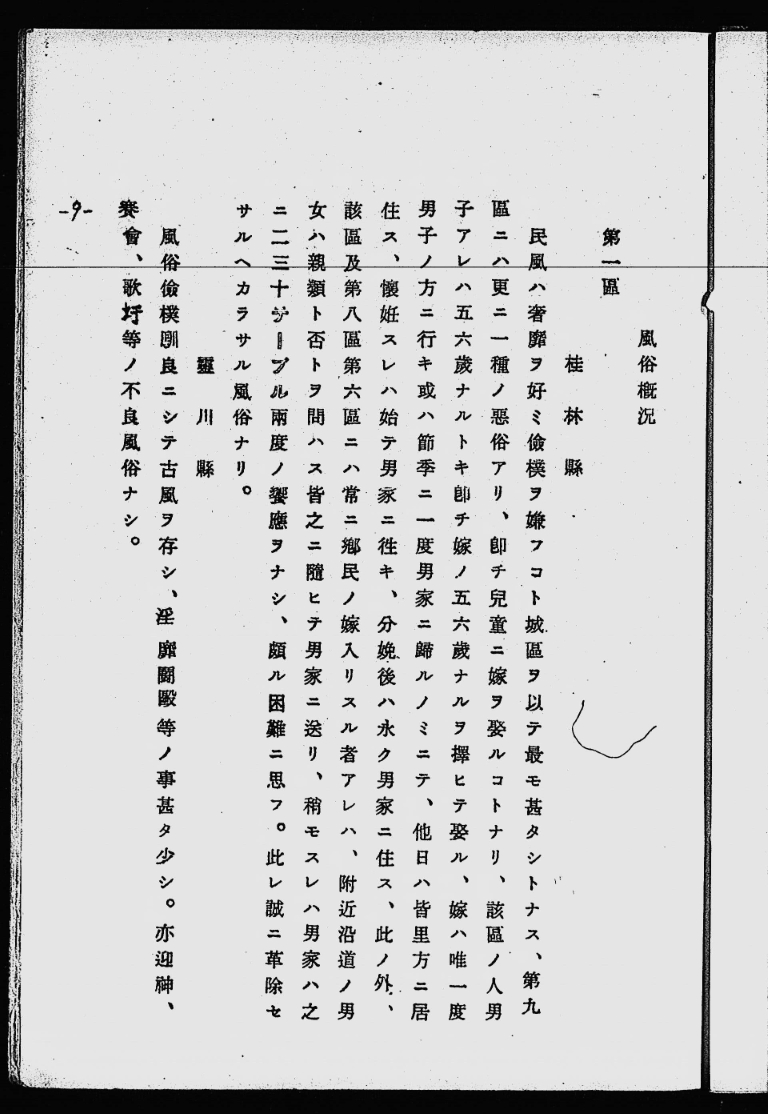 風俗概況
第一區
桂林縣
民風ハ奢靡ヲ好ミ儉樸ヲ嫌フコト城區ヲ以テ最モ甚タシトナス、第九
區ニハ更ニ一種ノ惡俗アリ、卽チ兒童ニ嫁ヲ娶ルコトナリ、該區ノ人男
子アレハ五六歲ナルトキ卽チ嫁ノ五六歲ナルヲ擇ヒテ娶ル、嫁ハ唯一度
男子ノ方ニ行キ或ハ節季ニ一度男家ニ歸ルノミニテ、他日ハ皆里方ニ居
住ス、懷姙スレハ始テ男家ニ徃キ、分娩後ハ永ク男家ニ住ス、此ノ外、
該區及第八區第六區ニハ常ニ鄕民ノ嫁入リスル者アレハ、附近沿道ノ男
女ハ親類ト否トヲ問ハス皆之ニ隨ヒテ男家ニ送リ、稍モスレハ男家ハ之
ニ二三十テーブル兩度ノ饗應ヲナシ、頗ル困難ニ思フ。此レ誠ニ革除セ
サルヘカラサル風俗ナリ。
靈川縣
風俗儉樸馴良ニシテ古風ヲ存シ、淫靡鬪毆等ノ事甚タ少シ。亦迎神、
賽會、歌圩等ノ不良風俗ナシ。
-9-